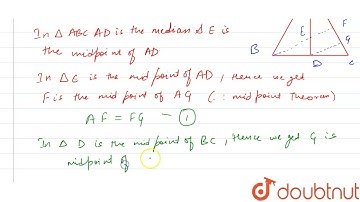 In △ ABC AD is the median & E is
the midpoint of AD
In △ E is the mid point of AD, Hence we get
F is the mid point of AG (∴ midpoint Theorem)
AF = FG — ①
In △ D is the midpoint of BC, Hence we get G is
midpoint of
E
F
G
B
D
C
doubtnut